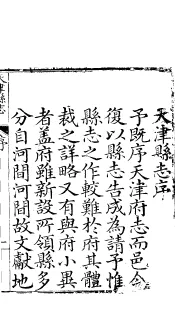 天津縣志序
予既序天津府志而邑令
復以縣志告成為請予惟
縣志之作較難於府其體
裁之詳略又有與府小異
者蓋府雖新設所領縣多
分自河間河間故文獻地
天津縣志
序